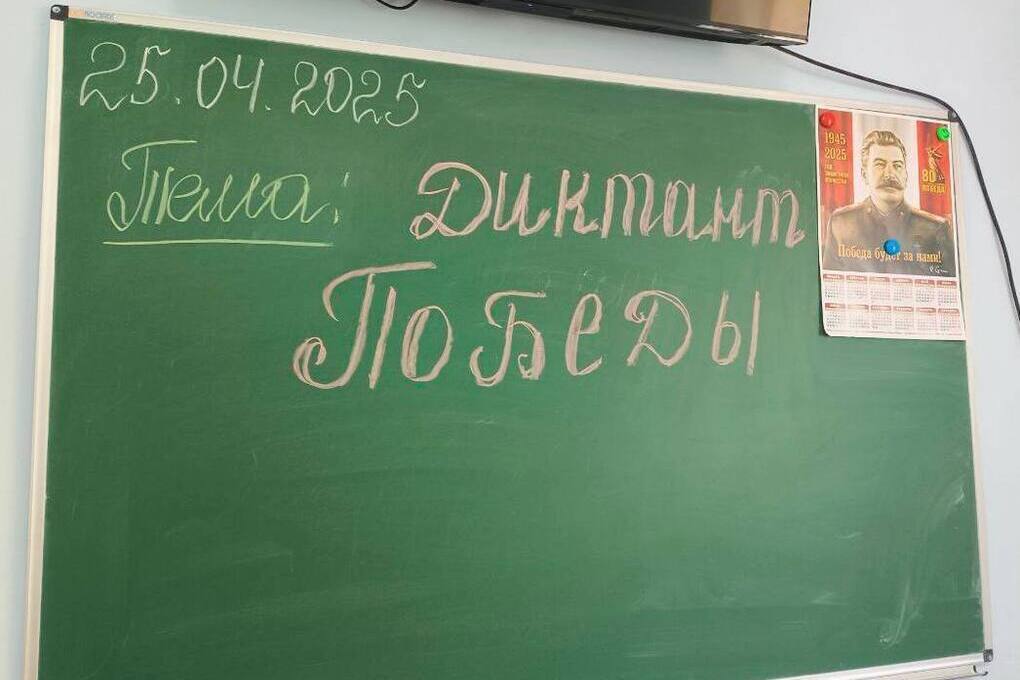 25.04.2025
Тема: Диктант
Победы
1945
2025
80
ПОБЕДА
Победа будет за нами!